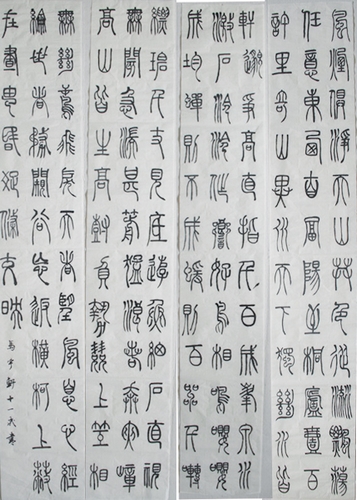 風煙俱淨天山共色從流飄蕩
任意東西自富陽至桐廬壹百
許里奇山異水天下獨絕水皆
軒邈爭高直指千百成峯泉水
激石泠泠作響好鳥相鳴嚶嚶
成均蟬則不則百千轉
縹碧千丈見底遊魚細石直視
無礙急湍甚箭猛浪若奔夾嶂
高山皆生寒樹負勢競上互相
無絕鳶飛戾天者望峯息心經
綸世務者窺谷忘返橫柯上蔽
在晝猶昏疏條交映
十一歲書